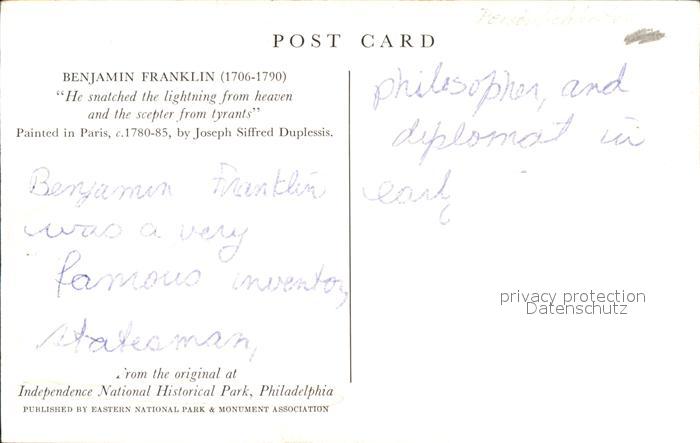 POST CARD
BENJAMIN FRANKLIN (1706-1790)
"He snatched the lightning from heaven
and the scepter from tyrants"
Painted in Paris, c.1780-85, by Joseph Siffred Duplessis.
Benjamin Franklin
was a very
famous inventor,
statesman,
From the original at
Independence National Historical Park, Philadelphia
PUBLISHED BY EASTERN NATIONAL PARK & MONUMENT ASSOCIATION
philosopher, and
diplomat in
early
privacy protection
Datenschutz